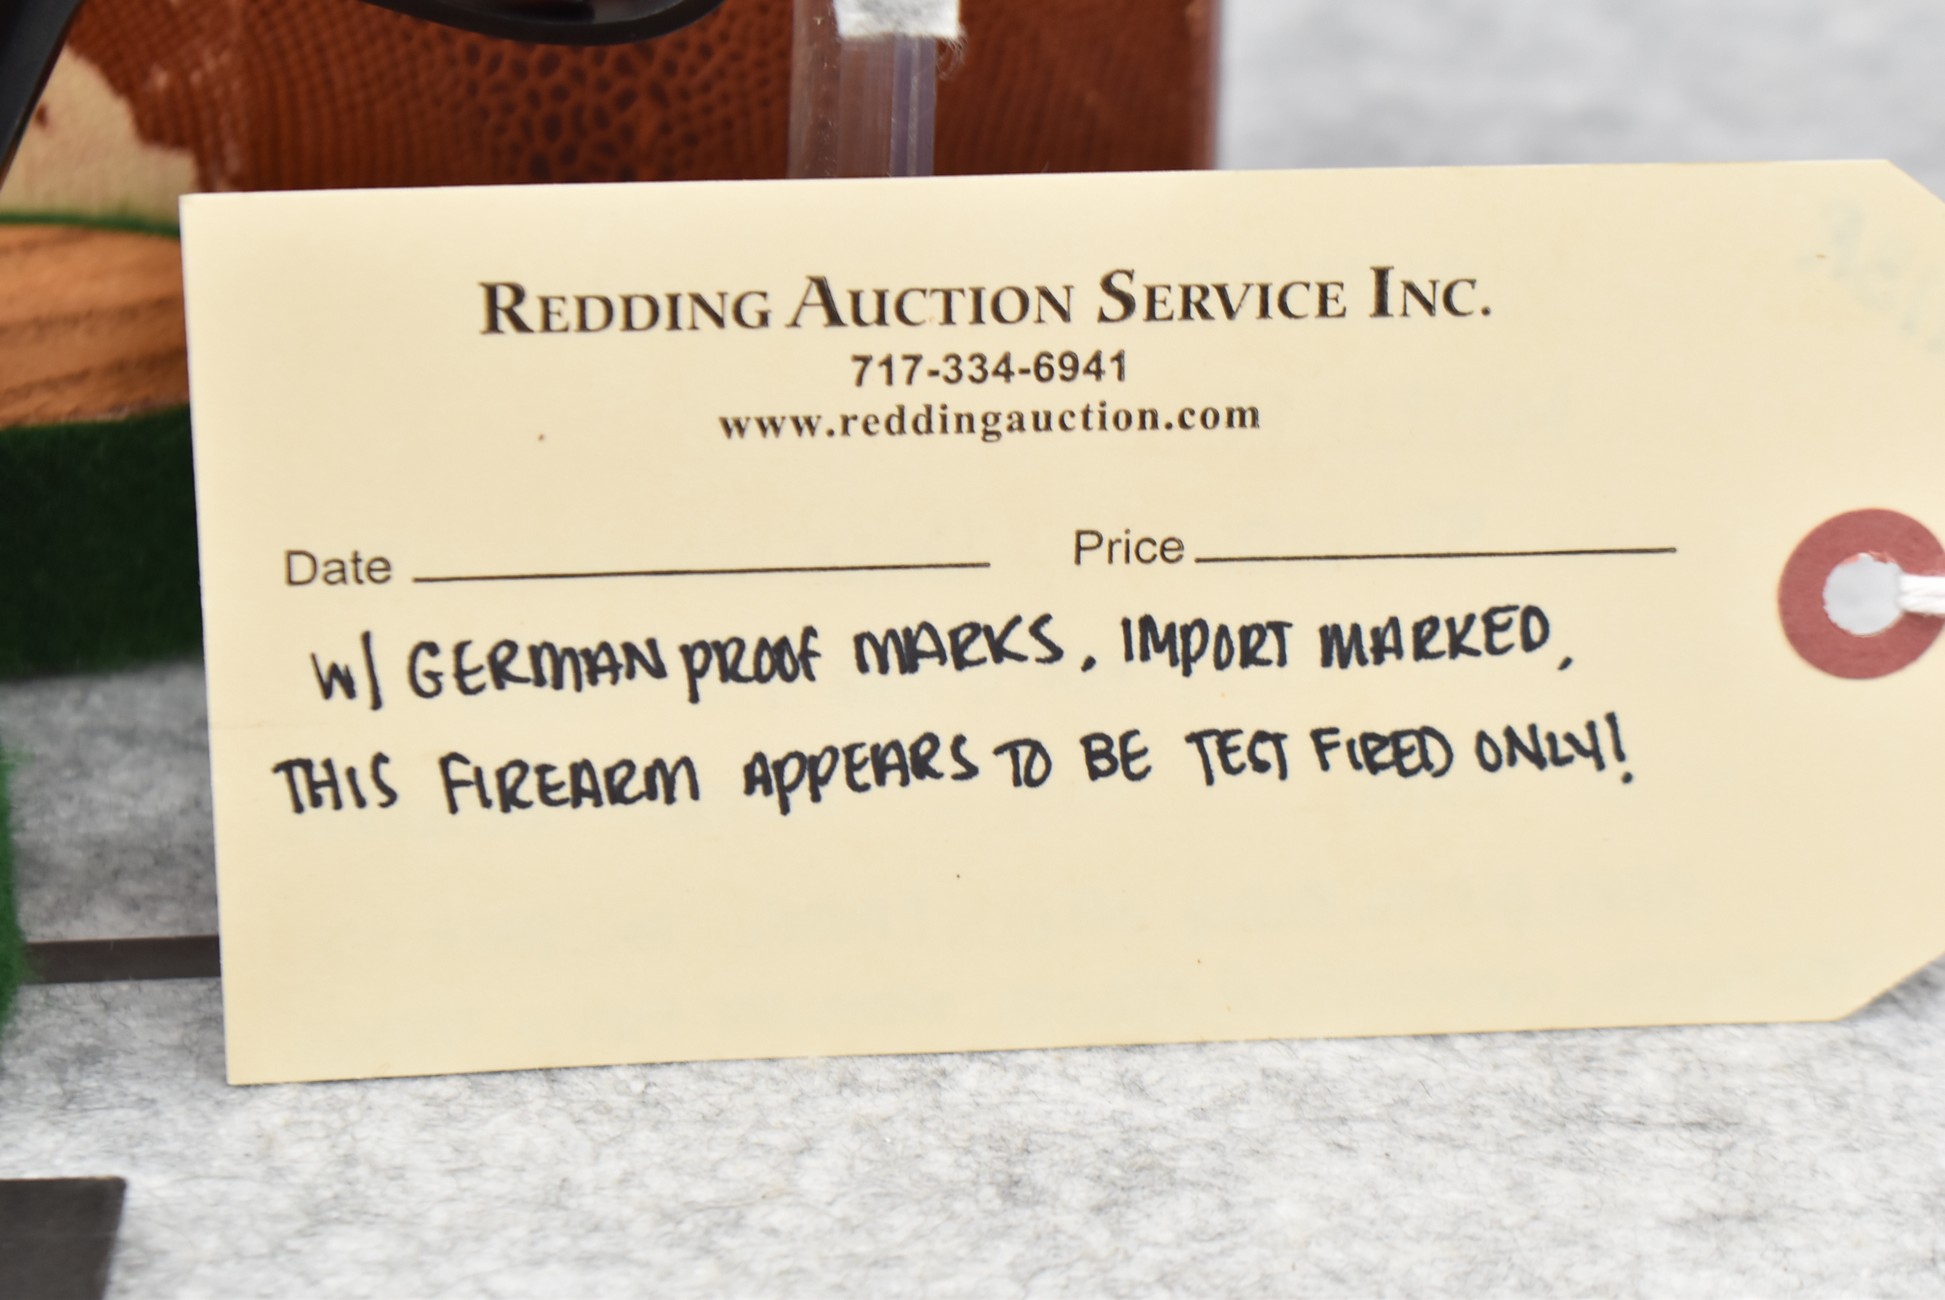 REDDING AUCTION SERVICE INC.
717-334-6941
www.reddingauction.com
Date Price
W/ GERMAN PROOF MARKS, IMPORT MARKED,
THIS FIREARM APPEARS TO BE TEST FIRED ONLY!